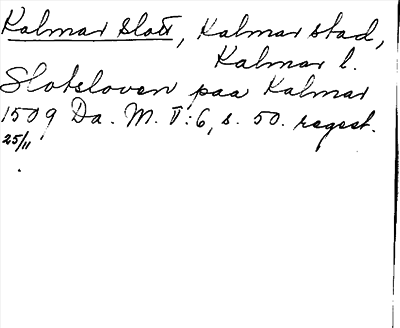 Kalmar slott, Kalmar stad,
Kalmar l.
Slotsloven paa Kalmar
1509 Da. M. V:6, s. 50. regest.
25/11